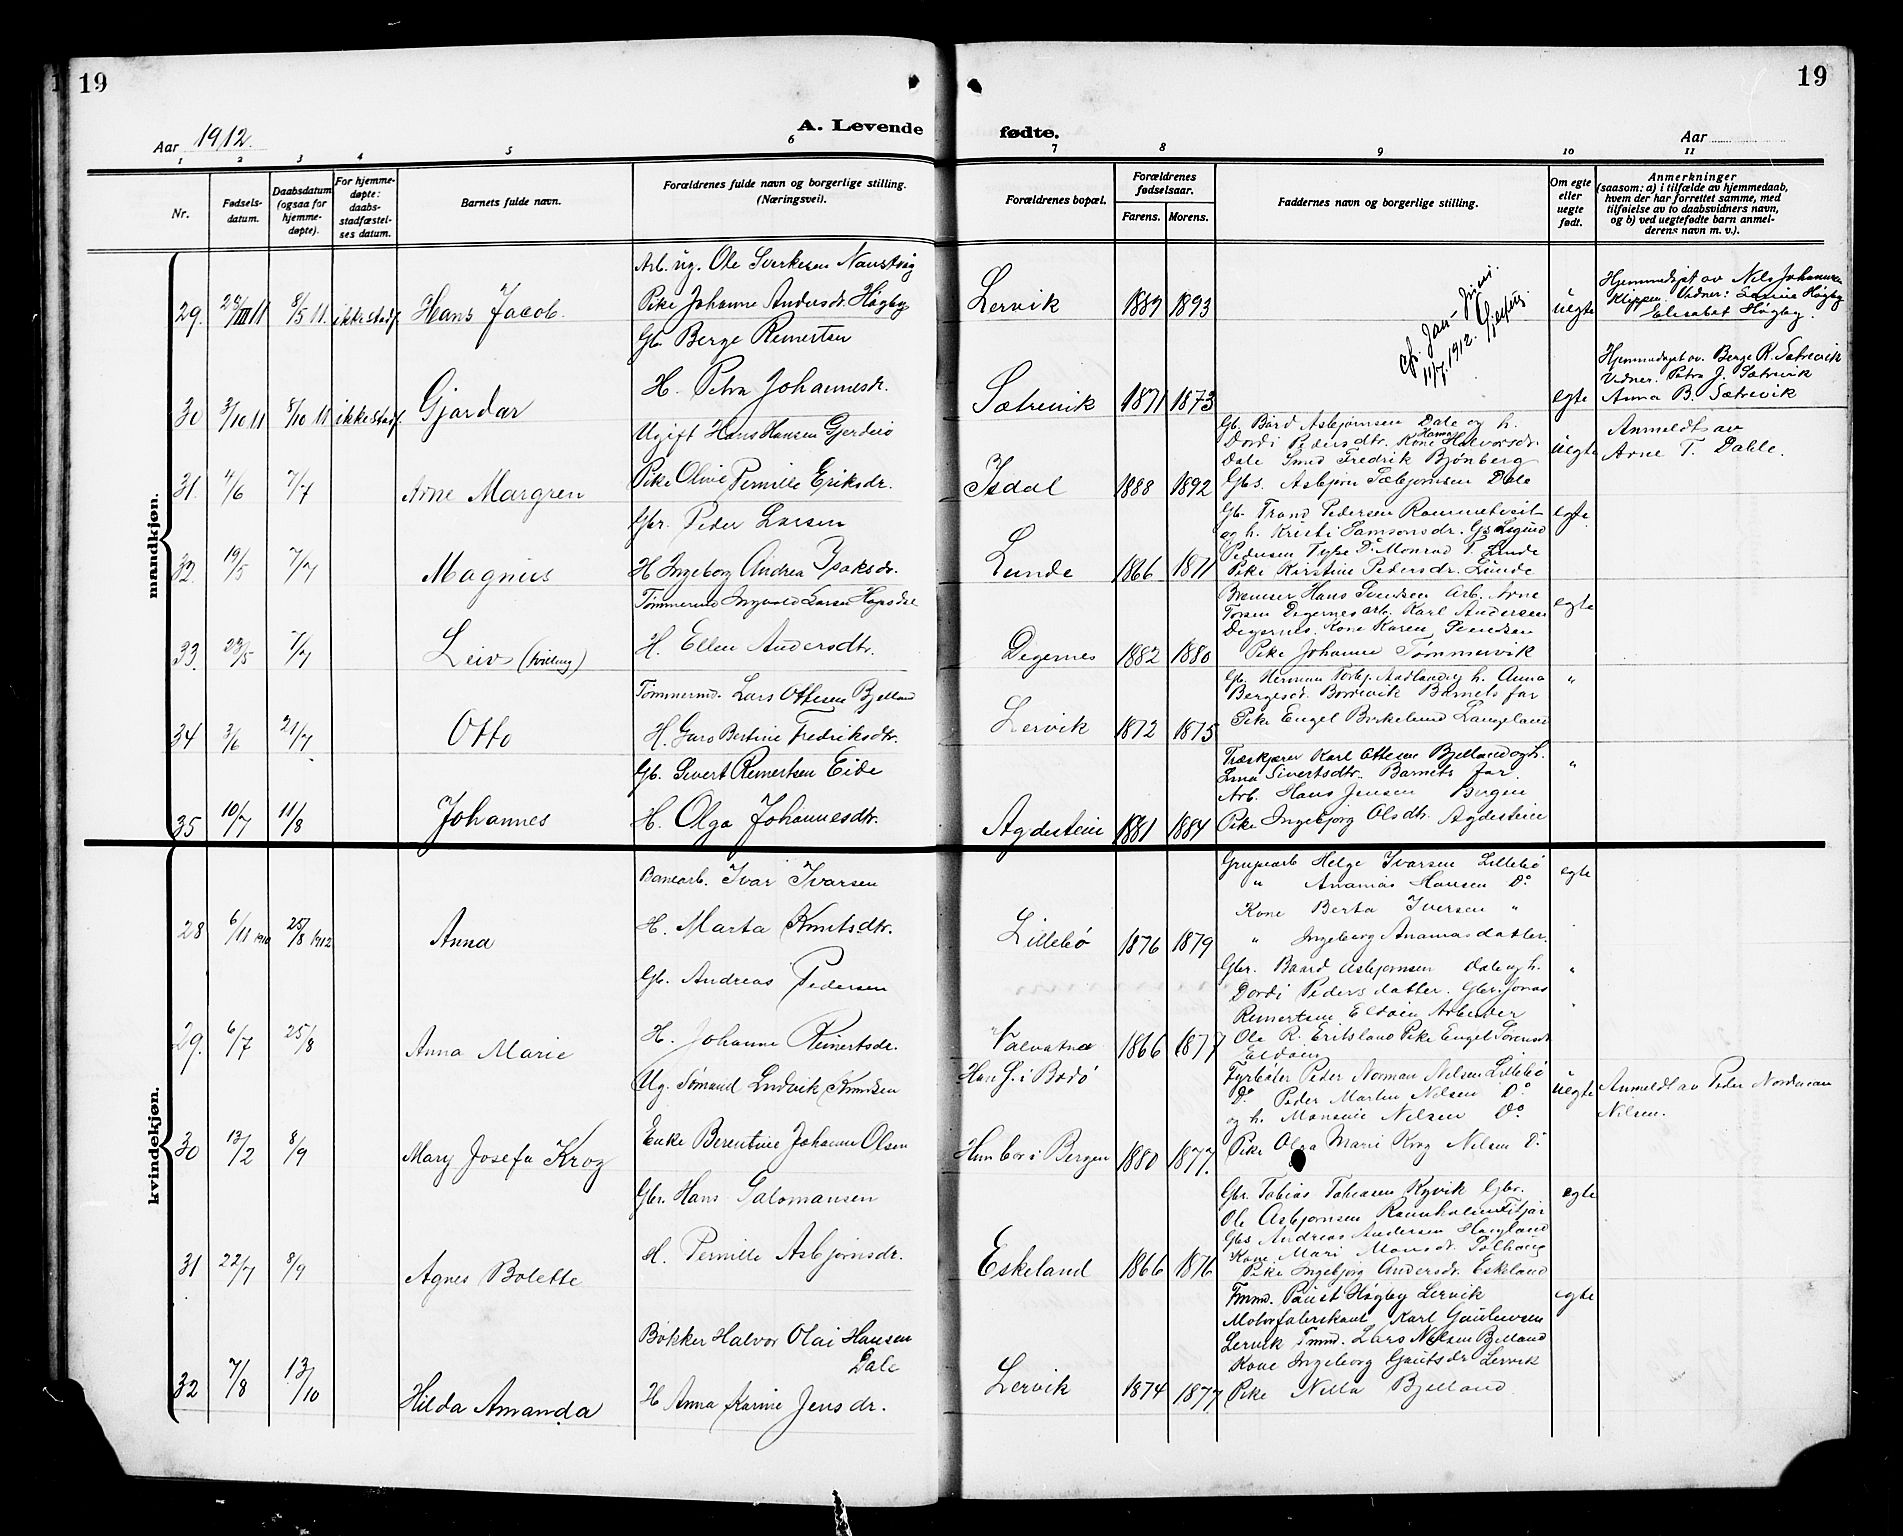 19
19
Aar 1912.
A. Levende
fødte.
Aar
1 2 3 4 5 6
7 8 9 10 11
Nr.
Fødsels-
datum.
Daabsdatum
(ogsaa for
hjemme-
døpte).
For hjemme-
døpte:
daabs-
stadfæstel-
ses datum.
Barnets fulde navn.
Forældrenes fulde navn og borgerlige stilling.
(Næringsvei).
Forældrenes bopæl.
Forældrenes
fødselsaar.
Farens. Morens.
Faddernes navn og borgerlige stilling.
Om egte
eller
uegte
født.
Anmerkninger
(saasom: a) i tilfælde av hjemmedaab,
hvem der har forrettet samme, med
tilføielse av to daabsvidners navn,
og b) ved uegtefødte barn anmel-
derens navn m. v.).
mandkjøn.
Arb. ug. Ole Sverkesen Naustvig
29. 28/III 11 8/5 11. ikke stadf. Hans Jacob. Pike Johanne Andersdr. Høgby
Lervik 1889 1893 uegte
Hjemmedøpt av Nils Johannesen
Klippen. Vidner: Høgby
Elisabet Høgby.
Jan-Juni.
11/7. 1912.
Gb. Berge Reinertsen
30 3/10 11 8/10 11 ikke stadf. Gjardar H. Petra Johannesdr.
Sætrevik 1871 1873 egte
Hjemmedøpt av. Berge R. Sætrevik
Vidner. Petra J. Sætrevik
Anna B. Sætrevik
Ugift Hans Hansen
31. 4/6 7/7 Arne Margren Pike Olive Pernille Eriksdr.
Isdal 1888 1892
Gb. Bård Asbjørnsen Dale og h.
Dordi Pedersdtr. Kone Hansa Halvorsdr.
Dale Smed Fredrik Bjønberg
Gbs. Asbjørn Sæbjørnsen Dale
uegte
Anmeldt av
Arne T. Dahle.
Gbr. Peder Larsen
32. 19/5 7/7 Magnus H. Ingeborg Andrea Isaksdr.
Lunde 1866 1871
Gb. Trond Pedersen Rommetveit
og h. Kristi Samsonsdr. Gs. Sigurd
Pedersen Tyse Do Monrad P. Lunde
Pike Kirstine Pedersdr. Lunde
egte
Tømmermd Ingvald Larsen Hopsdal
33. 23/5 7/7 Leiv (tvilling) H. Ellen Andersdtr.
Degernes 1882 1880
Bremser Hans Svendsen Arb. Arne
Torsen Degernes arb. Karl Andersen
Degernes. Kone Karen Svendsen
Pike Johanne Tømmervik
egte
Tømmermd. Lars Ottesen Bjelland
34 3/6 21/7 Otto H. Guro Bertine Fredriksdtr.
Lervik 1872 1875
Gb. Herman Torbj. Aadland og h. Anna
Bergesdr. Bordevik Barnets far
Pike Engel Birkelund Langeland
"
Gb. Sivert Reinertsen Eide
35 10/7 11/8 Johannes H. Olga Johannesdtr.
Agdestein 1881 1884
Træskjærer Karl Ottesen Bjelland og h.
Lina Sivertsdtr. Barnets far.
Arb. Hans Jensen Bergen
Pike Ingebjørg Olsdtr. Agdestein
"
kvindekjøn.
Banearb. Ivar Ivarsen
28 6/11 1910 25/8 1912 Anna H. Marta Knutsdtr.
Lillebø 1876 1879
Grupearb Helge Ivarsen Lillebø
" Ananias Hansen Do
Kone Berta Iversen "
" Ingeborg Ananiasdatter.
egte
Gb. Andreas Pedersen
29. 6/7 25/8 Anna Marie H. Johanne Reinertsdr.
Valvatna 1866 1877
Gbr. Baard Asbjørnsen Dale og h.
Dordi Pedersdatter. Gbr. Jonas
Reinertsen Eldøen Arbeider
Ole R. Eritsland Pike Engel Sørensdr
Eldøen
"
Ug. Sømand Ludvik Knudsen
30 13/2 8/9 Mary Josefa Krog Enke Berentine Johanne Olsen
Han f. i Bodø
Hun bor i Bergen 1880 1877.
Fyrbøter Peder Norman Nilsen Lillebø
Do Peder Martin Nilsen Do
og h. Monsine Nilsen Do
Pike Olga Marie Krog Nilsen Do
uegte
Anmeldt av Peder Norman
Nilsen.
Gbr. Hans Salomonsen
31 22/7 8/9 Agnes Bolette H. Pernille Asbjørnsdr.
Eskeland 1866 1876
Gbr. Tobias Tobiasen Kyvik Gbr.
Ole Asbjørnsen Rannholmen Fitjar
Gbs Andreas Andersen Haugland
Kone Mari Monsdr. Pølhaug
Pike Ingebjørg Andersdr. Eskeland
egte
Bøkker Halvor Olai Hansen
Dale
32 7/8 13/10 Hilda Amanda H. Anna Karine Jensdr.
Lervik 1874 1877
Tmmd. Paust Høgby Lervik
Motorfabrikant Karl Gautesen
Lervik Tmmd. Lars Nilsen Bjelland
Kone Ingeborg Gautsdr Lervik
Pike Nilla Bjelland.
egte